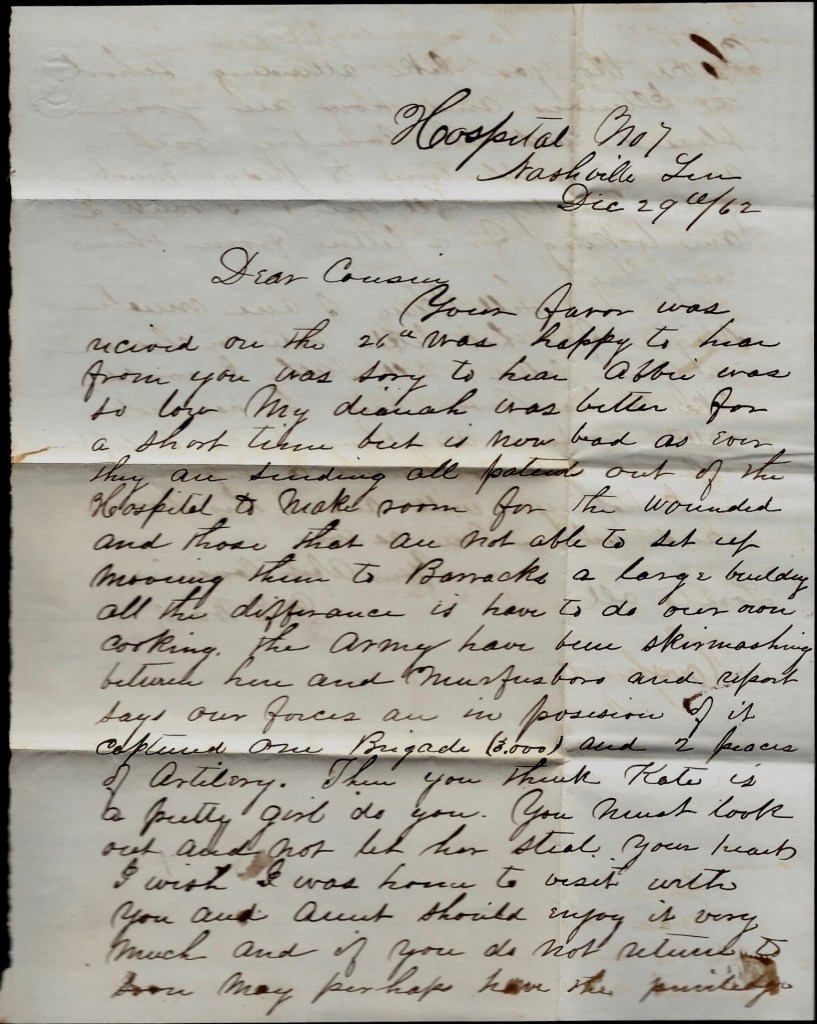 Hospital No 7
Nashville Ten
Dec 29th/62
Dear Cousin
Your favor was
recived on the 26th was happy to hear
from you was sory to hear Abbie was
so low My diareah was better for
a short time but is now bead as ever
they are sending all patend out of the
Hospital to make room for the wounded
and those that are not able to set up
mooving them to Barracks a large buildey
all the differance is have to do our own
cooking. the Army have been skirmashing
between here and Murfusboro and report
says our forces are in posesion of it
captured one Brigade (3,000) and 2 peaces
of Artilery. Then you think Kate is
a pretty girl do you. You must look
out and not let her steal your heart
I wish I was home to visit with
you and Aunt should enjoy it very
much and if you do not return to
soon may perhaps have the priviledge